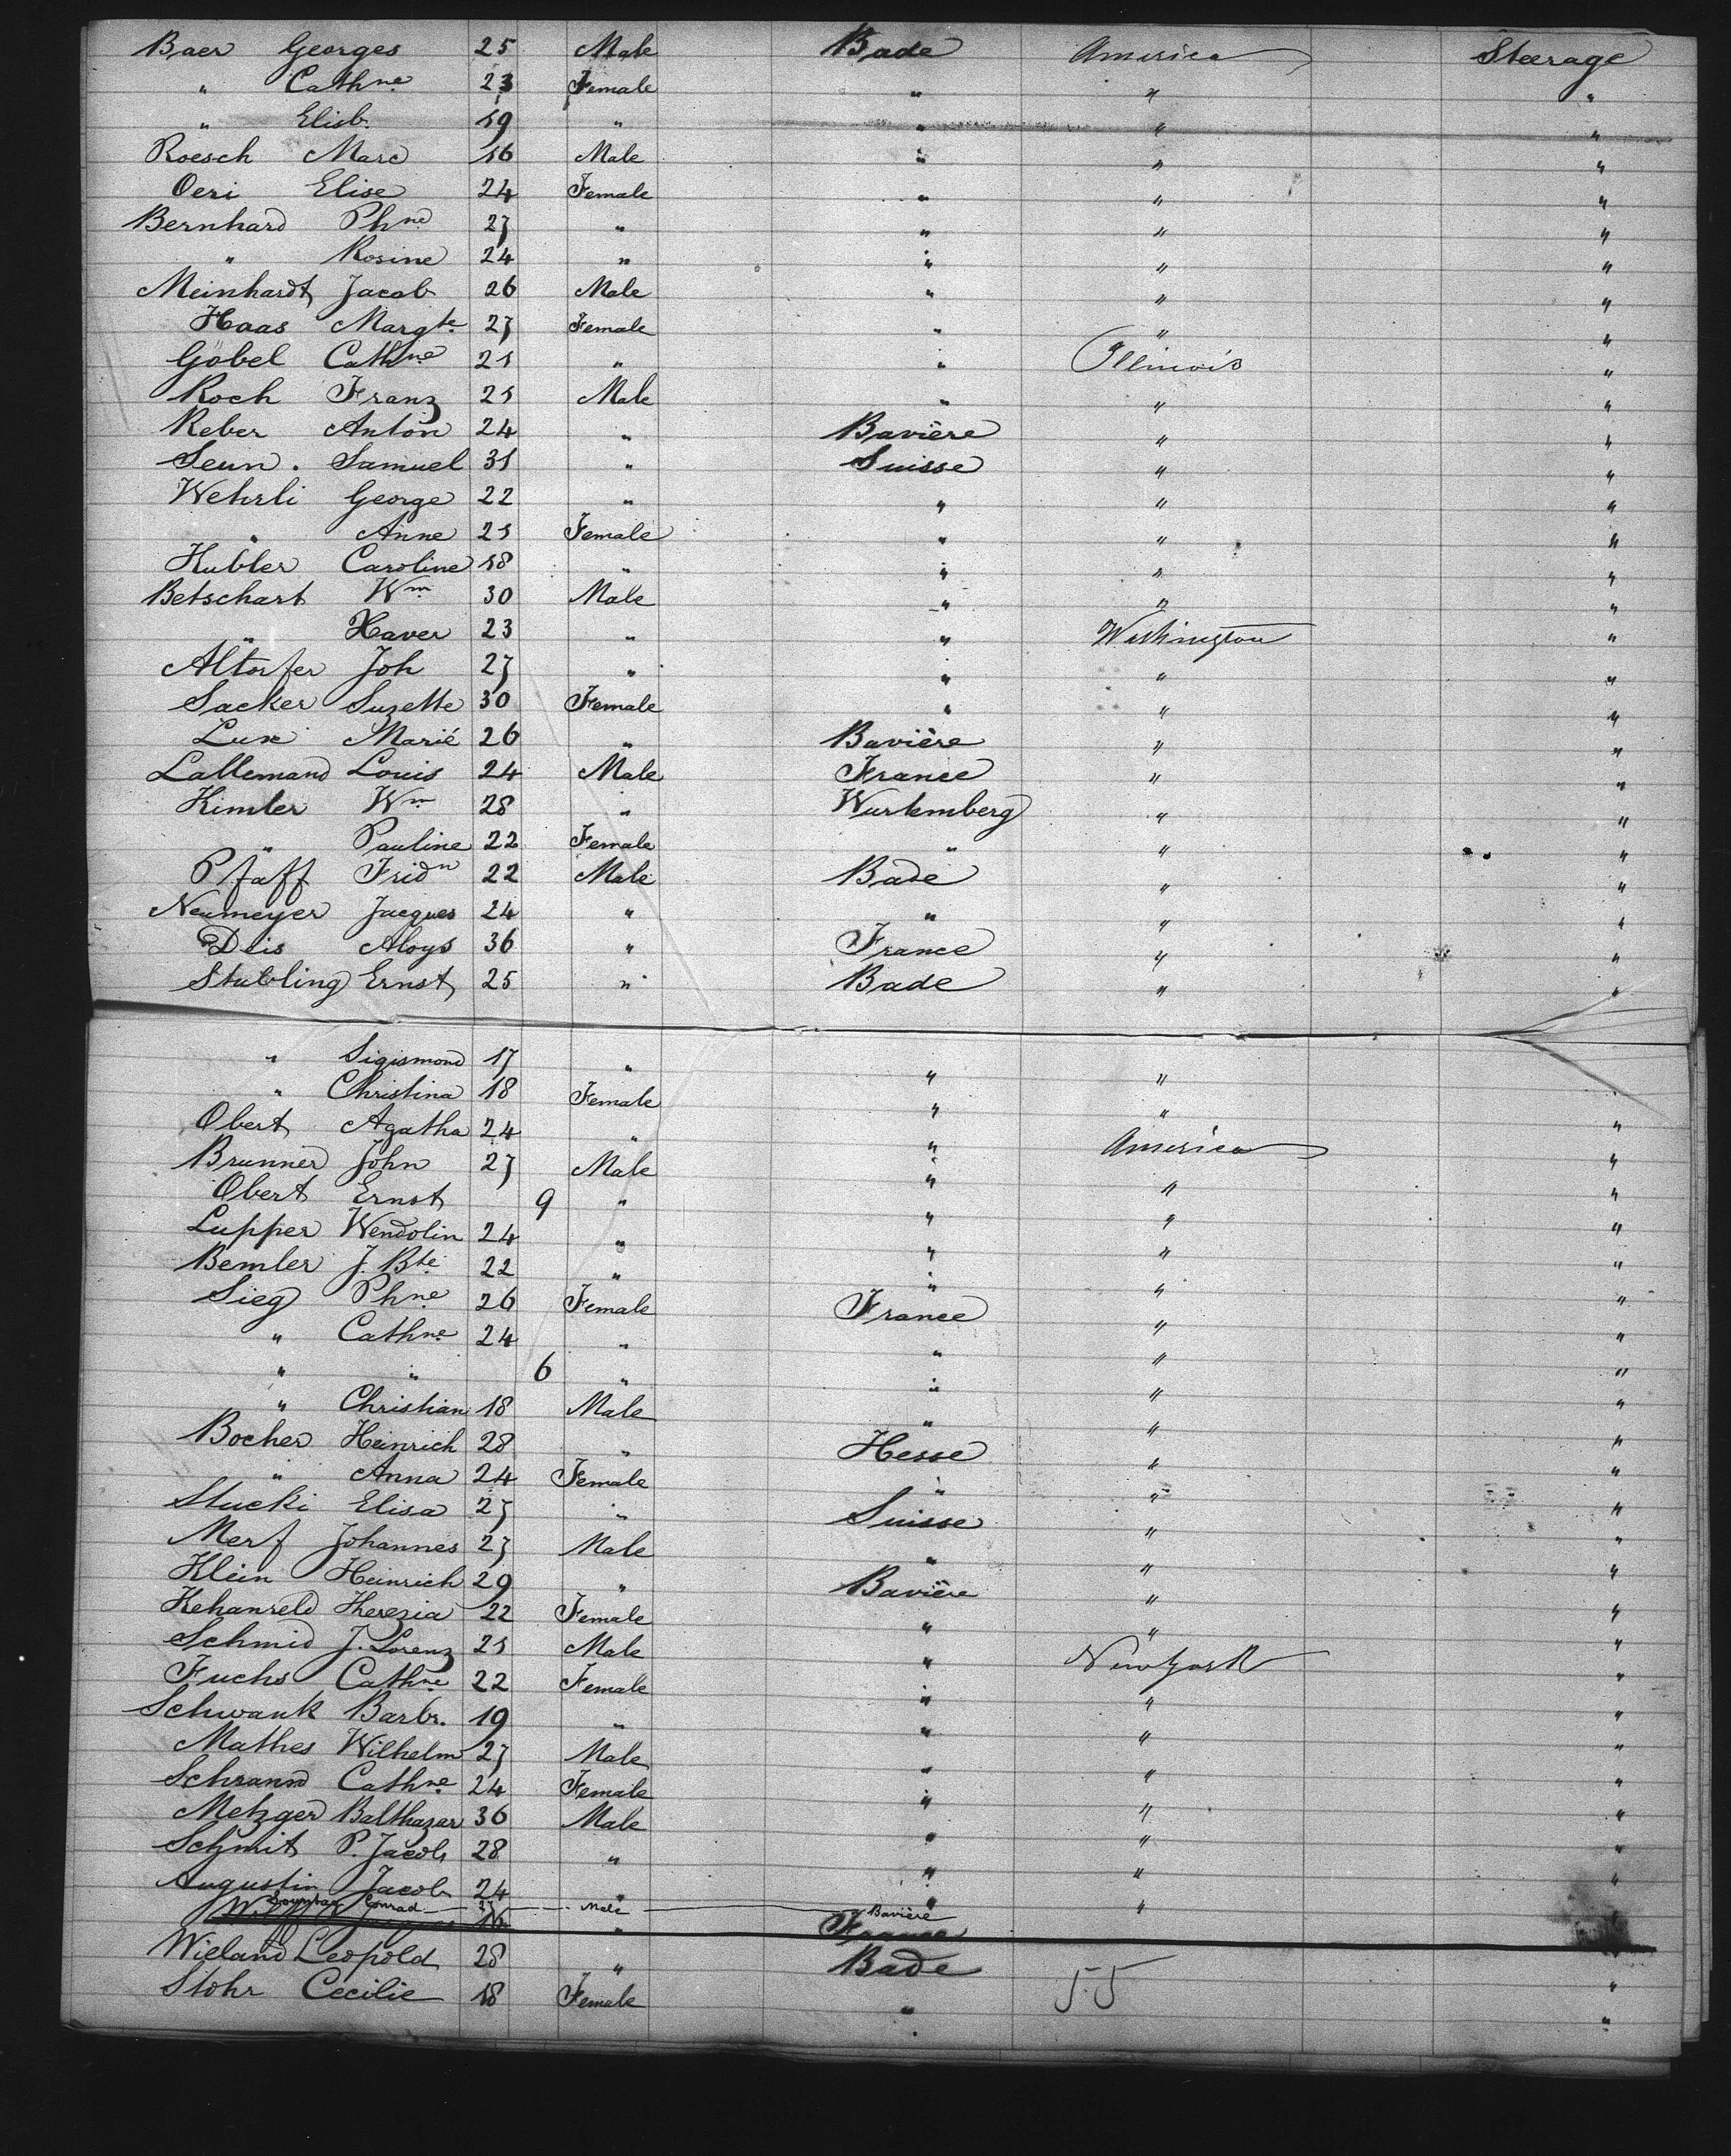 Baer Georges 25 Male Bade America Steerage
" Cathne 23 Female " " "
" Elisb. 19 " " " "
Roesch Marc 16 Male " " "
Oeri Elise 24 Female " " "
Bernhard Phne 27 " " " "
" Rosine 24 " " " "
Meinhardt Jacob 26 Male " " "
Haas Margte 27 Female " " "
Göbel Cathne 21 " " Illinois "
Koch Franz 21 Male " " "
Reber Anton 24 " Bavière " "
Senn. Samuel 31 " Suisse " "
Wehrli George 22 " " " "
" Anne 21 Female " " "
Hubler Caroline 18 " " " "
Betschart Wm 30 Male " " "
" Xaver 23 " " Washington "
Altorfer Joh 27 " " " "
Sacker Suzette 30 Female " " "
Lux Marié 26 " Bavière " "
Lallemand Louis 24 Male France " "
Kimler Wm 28 " Wurtemberg " "
" Pauline 22 Female " " "
Pfaff Fridn 22 Male Bade " "
Neumeyer Jacques 24 " " " "
Dris Aloys 36 " France " "
Stubling Ernst 25 " Bade " "
" Sigismond 17 " " "
" Christina 18 Female " " "
Obert Agatha 24 " " America "
Brunner John 27 Male " " "
Obert Ernst 9 " " " "
Lupper Wendolin 24 " " " "
Bemler J. Bte 22 " " " "
Sieg Phne 26 Female France " "
" Cathne 24 " " " "
" " 6 " " " "
" Christian 18 Male " " "
Bocher Heinrich 28 " Hesse " "
" Anna 24 Female " " "
Stucki Elisa 27 " Suisse " "
Merf Johannes 27 Male " " "
Klein Heinrich 29 " Bavière " "
Theresia 22 Female " " "
Schmid J. Lorenz 21 Male " New York "
Fuchs Cathne 22 Female " " "
Schwank Barbr. 19 " " " "
Mathes Wilhelm 27 Male " " "
Schramm Cathne 24 Female " " "
Metzger Balthazar 36 Male " " "
Schmit P. Jacob 28 " " " "
Augustin Jacob 24 " " " "
Conrad 27 Male Bavière
France
Wieland Leopold 28 " Bade "
Stohr Cecilie 18 Female " 55 "